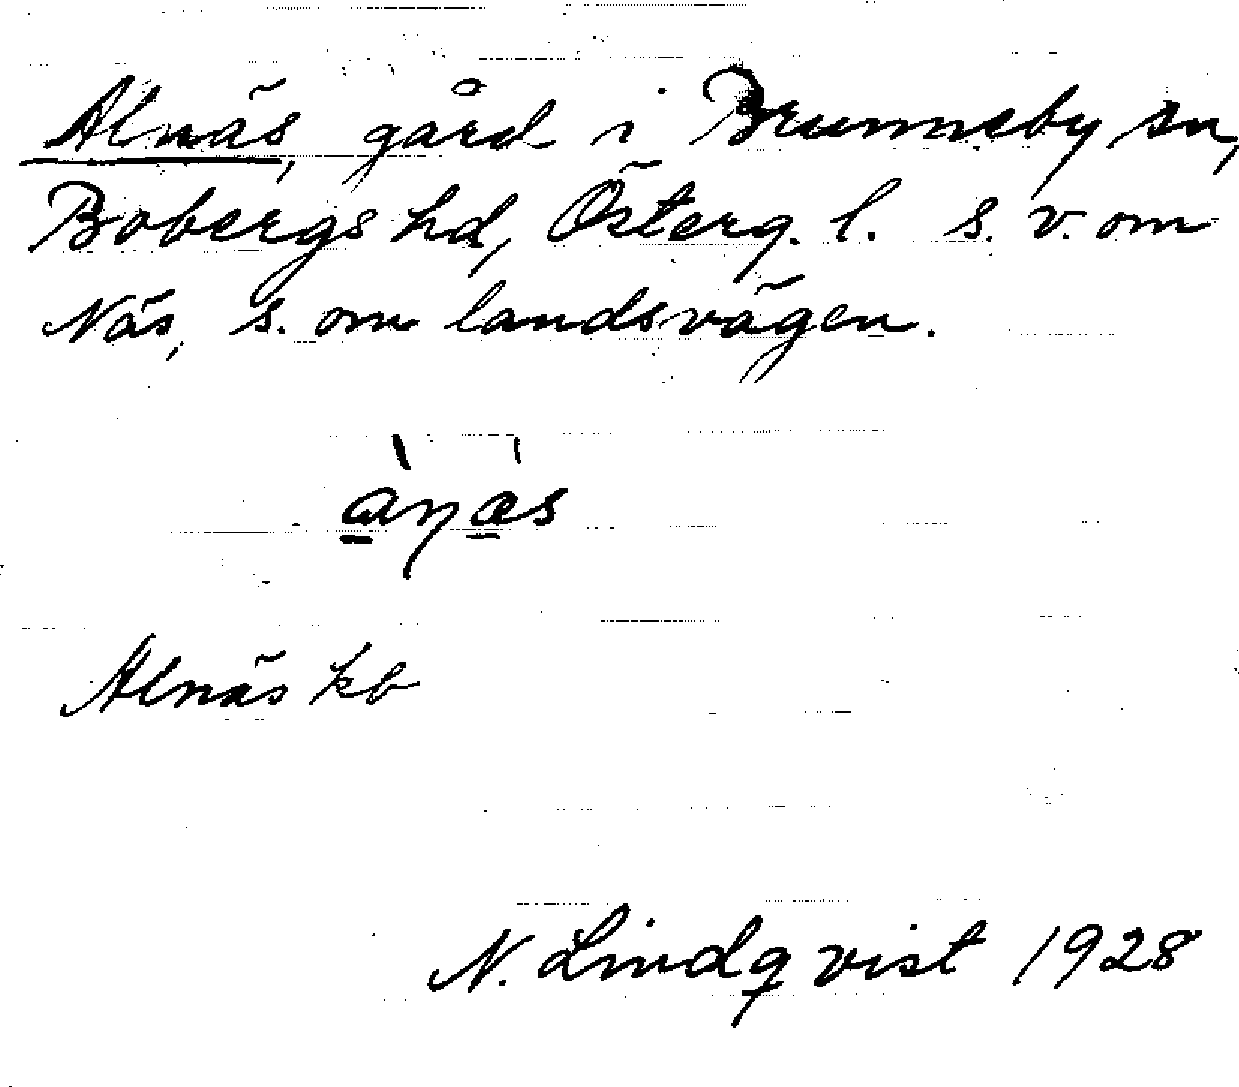 Alnäs, gård i Brunneby sn,
Bobergs hd, Österg. l. s. v. om
Näs, s. om landsvägen.
Alnäs kb
N. Lindqvist 1928